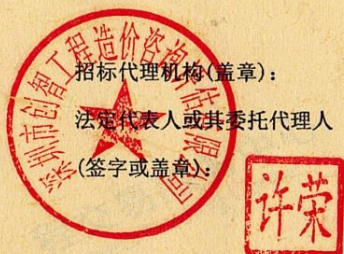 招标代理机构(盖章):
法定代表人或其委托代理人
(签字或盖章):
深圳市创智工程造价咨询有限公司
许荣